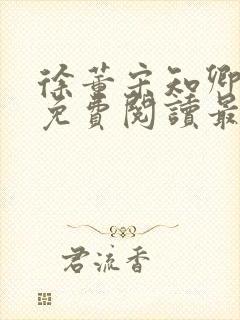 徐董宋知卿
免費閱讀最
君流香